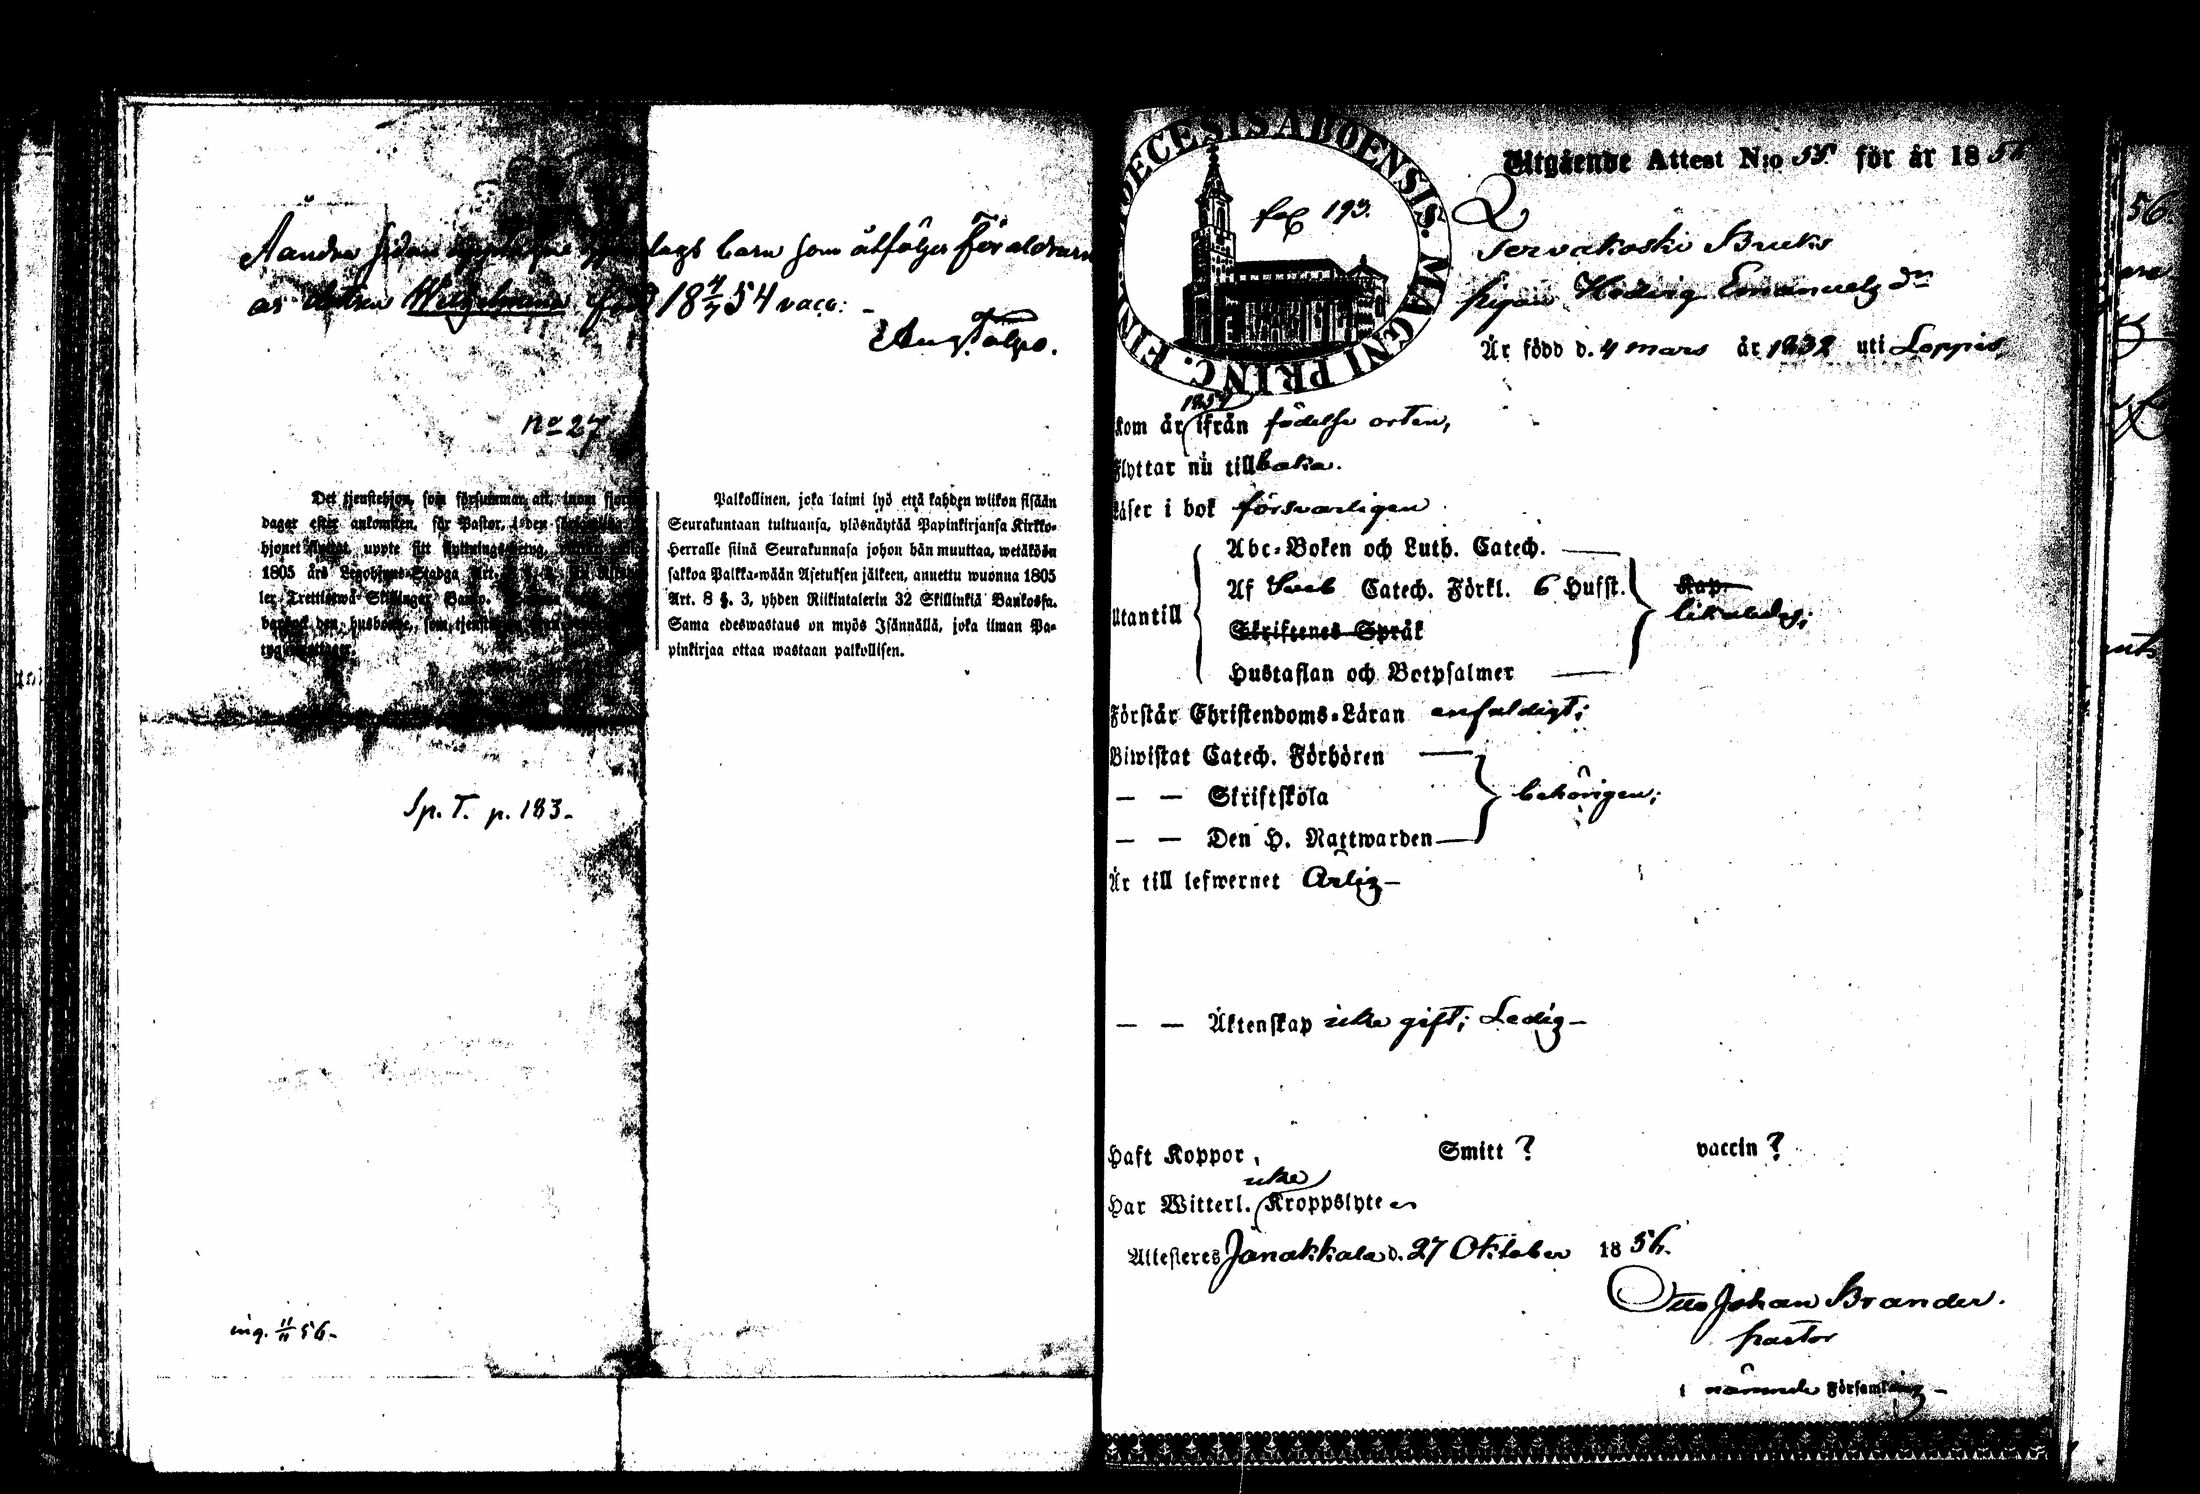 Å andra sidan lags barn som åtföljer Föräldrarn
är dottren Wilhelmina född 18 4/7 54 vacc: -
Aug Talpo.
no 27
Det tjenstehjon, som försummar att, inom fjorton
dagar efter ankomsten, för Pastor, i den
hjonet flyttat, uppte sitt flyttningsbetyg,
1805 års Legohjons-Stadga Art.
ler Trettiotwå Skillingar Banco.
den husbonde, som tjenste
Palkollinen, joka laimi lyö että kahden wiikon sisään
Seurakuntaan tultuansa, ylösnäytää Papinkirjansa Kirkko-
Herralle siinä Seurakunnasa johon hän muuttaa, wetäköön
sakkoa Palkka-wään Asetuksen jälkeen, annettu wuonna 1805
Art. 8 §. 3, yhden Riikintalerin 32 Skillinkiä Bankossa.
Sama edeswastaus on myös Isännällä, joka ilman Pa-
pinkirjaa ottaa wastaan palkollisen.
Sp. T. p. 183.-
ing. 11/11 56.-
DECESIS ABOENSIS. MAGNI PRINC. FIN
fol 193.
Utgående Attest N:o 55 för år 1856
Tervakoski Bruks
pigan Hedvig Emanuelsdr
Är född d. 4 mars år 1832 uti Loppis,
Kom år 1854 ifrån födelse orten,
Flyttar nu tillbaka.
Läser i bok försvarligen
Utantill
Abc-Boken och Luth. Catech.
Af Sveb Catech. Förkl. 6 Hufst.
Skriftenes Språk
Hustaflan och Botpsalmer
Kap.
likaledes;
Förstår Christendoms-Läran enfaldigt;
Biwistat Catech. Förhören
— — Skriftskola
— — Den H. Nattwarden
behörigen;
Är till lefwernet Ärlig-
— — Äktenskap icke gift; Ledig-
Haft Koppor, Smitt ? vaccin ?
Har Witterl. icke Kroppslyte
Attesteres Janakkala d. 27 Oktober 1856.
Otto Johan Brander.
pastor
i nämnde Församling -
56.